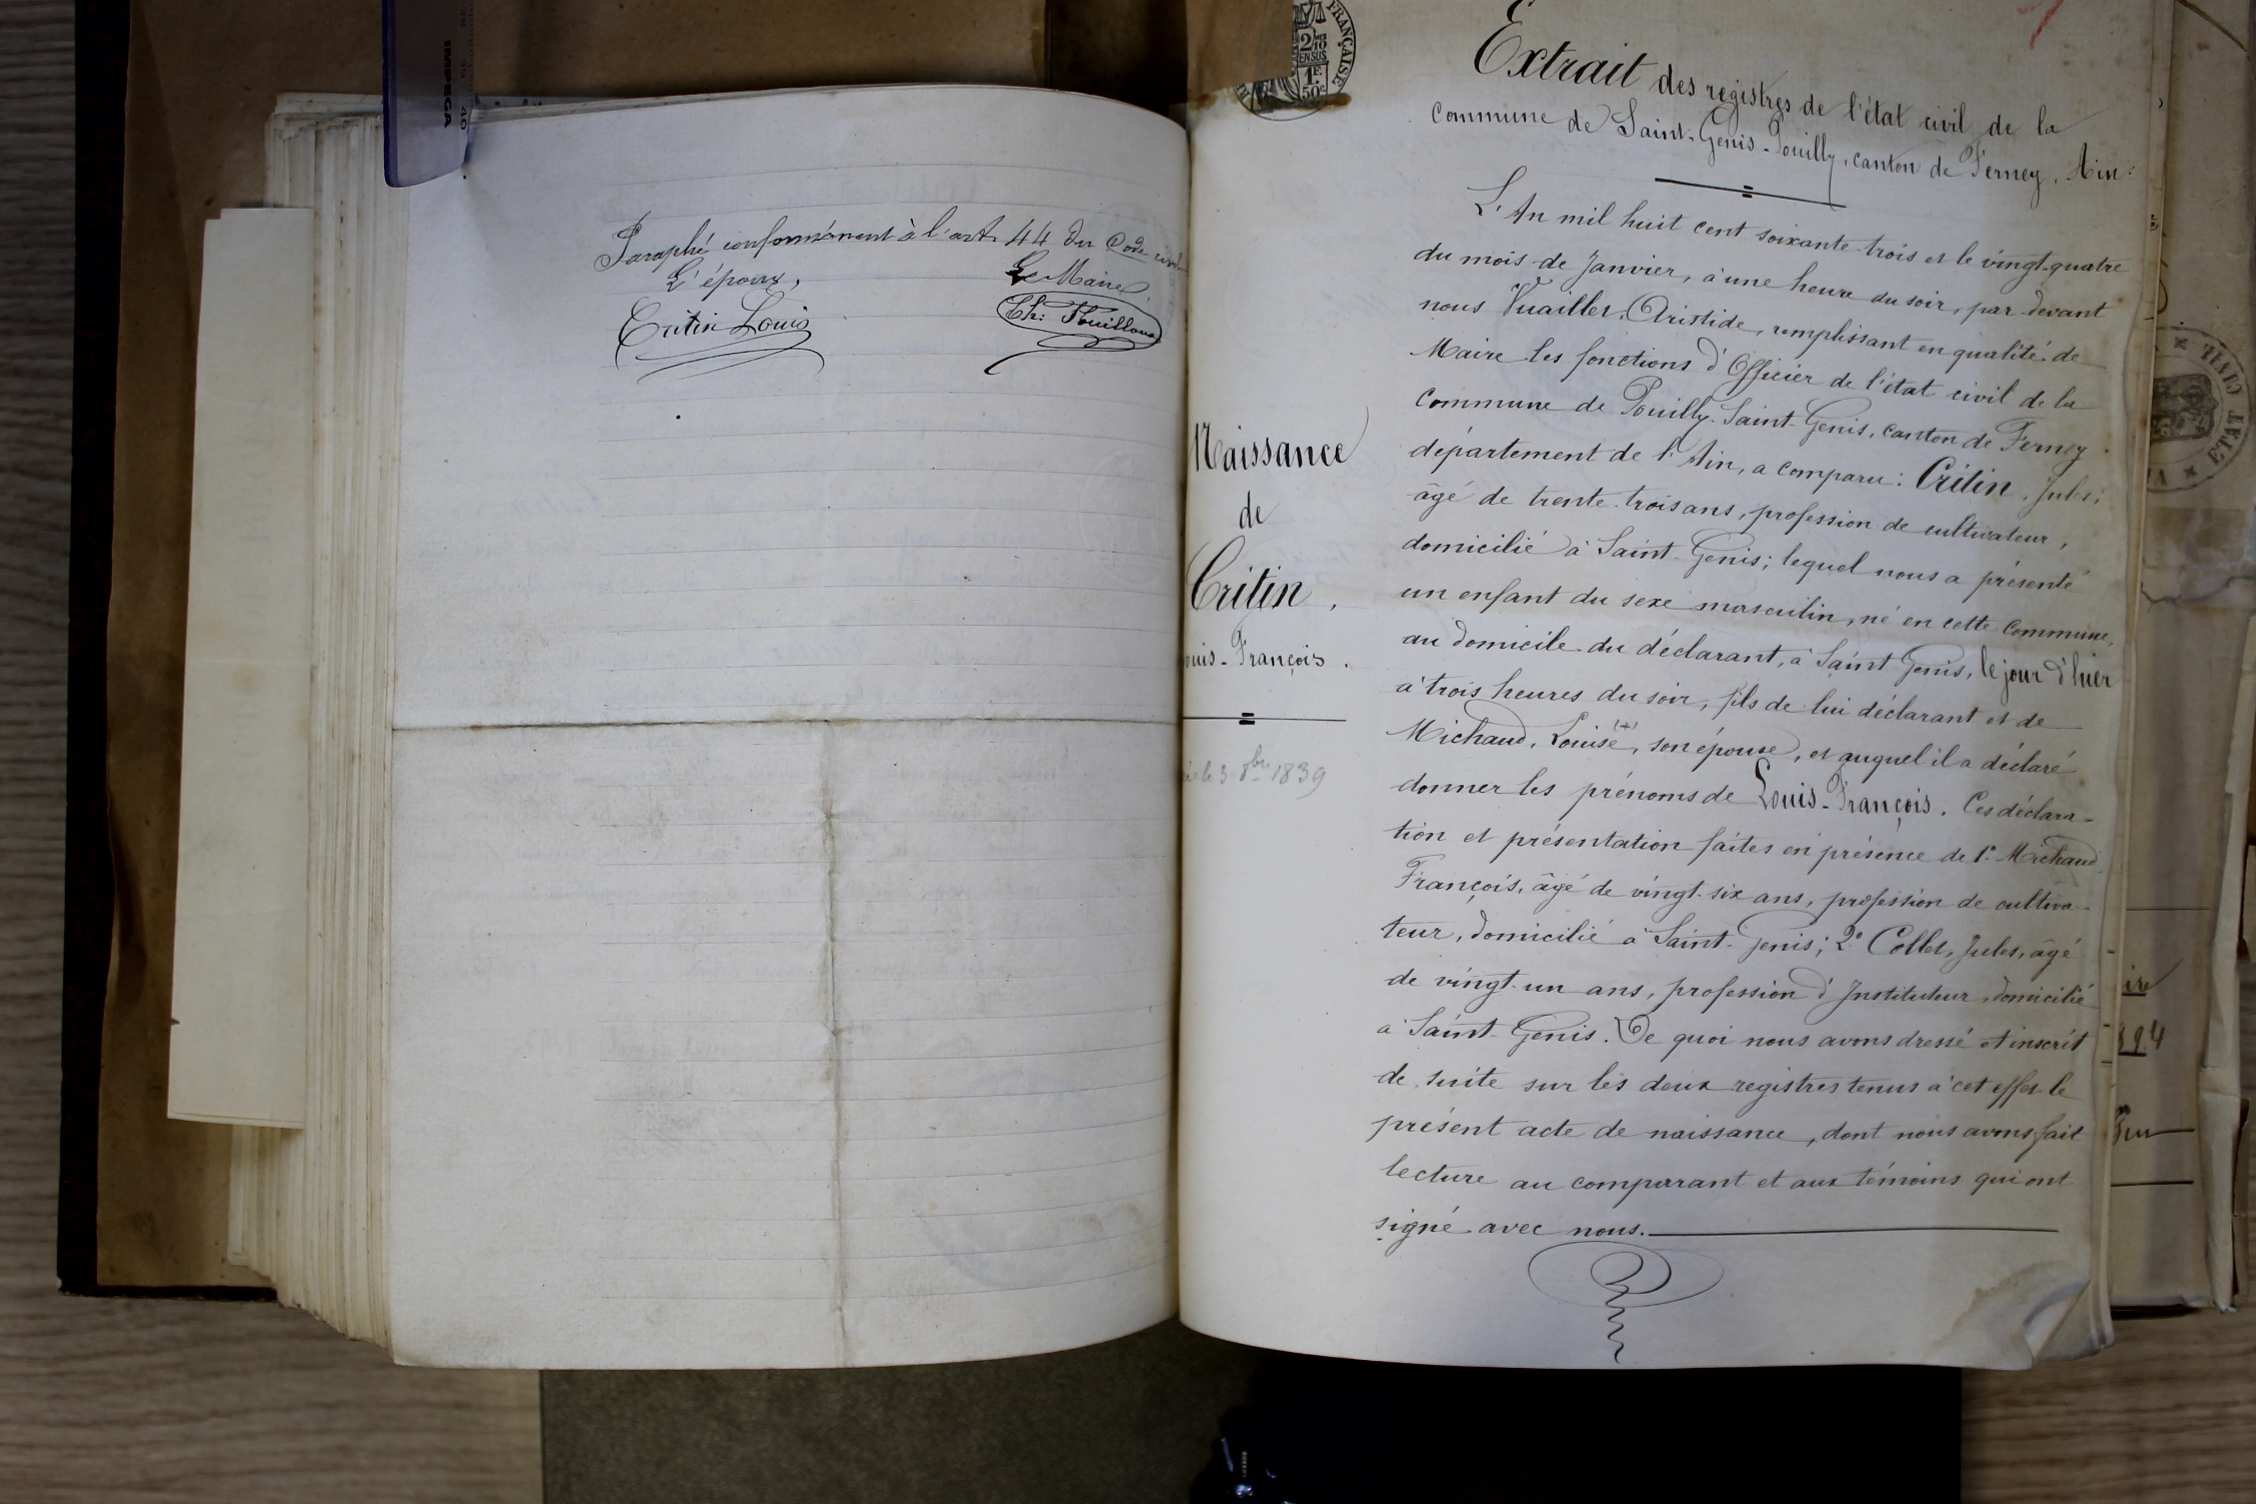 IMPEGA
40
Paraphé conformément à l'art. 44 du Code civil
L'époux,
Le Maire.
Critin Louis
FRANÇAISE
2/10
EN SUS
1F
50c
Naissance
de
Critin,
ouis-François.
le 3 8bre 1839
Extrait des registres de l'état civil de la
Commune de Saint-Genis-Pouilly, canton de Ferney, Ain:
L'An mil huit cent soixante-trois et le vingt-quatre
du mois de Janvier, à une heure du soir, par devant
nous Vuaillet, Aristide, remplissant en qualité de
Maire les fonctions d'Officier de l'état civil de la
Commune de Pouilly-Saint-Genis, canton de Ferney
département de l'Ain, a comparu: Critin, Jules,
âgé de trente-trois ans, profession de cultivateur,
domicilié à Saint-Genis; lequel nous a présenté
un enfant du sexe masculin, né en cette Commune,
au domicile du déclarant, à Saint Genis, le jour d'hier
à trois heures du soir, fils de lui déclarant et de
Michaud, Louise (+), son épouse, et auquel il a déclaré
donner les prénoms de Louis-François. Ces déclara-
tion et présentation faites en présence de 1° Michaud
François, âgé de vingt-six ans, profession de cultiva-
teur, domicilié à Saint-Genis; 2° Collet, Jules, âgé
de vingt-un ans, profession d'Instituteur, domicilié
à Saint-Genis. De quoi nous avons dressé et inscrit
de suite sur les deux registres tenus à cet effet le
présent acte de naissance, dont nous avons fait
lecture au comparant et aux témoins qui ont
signé avec nous.
ÉTAT CIVIL